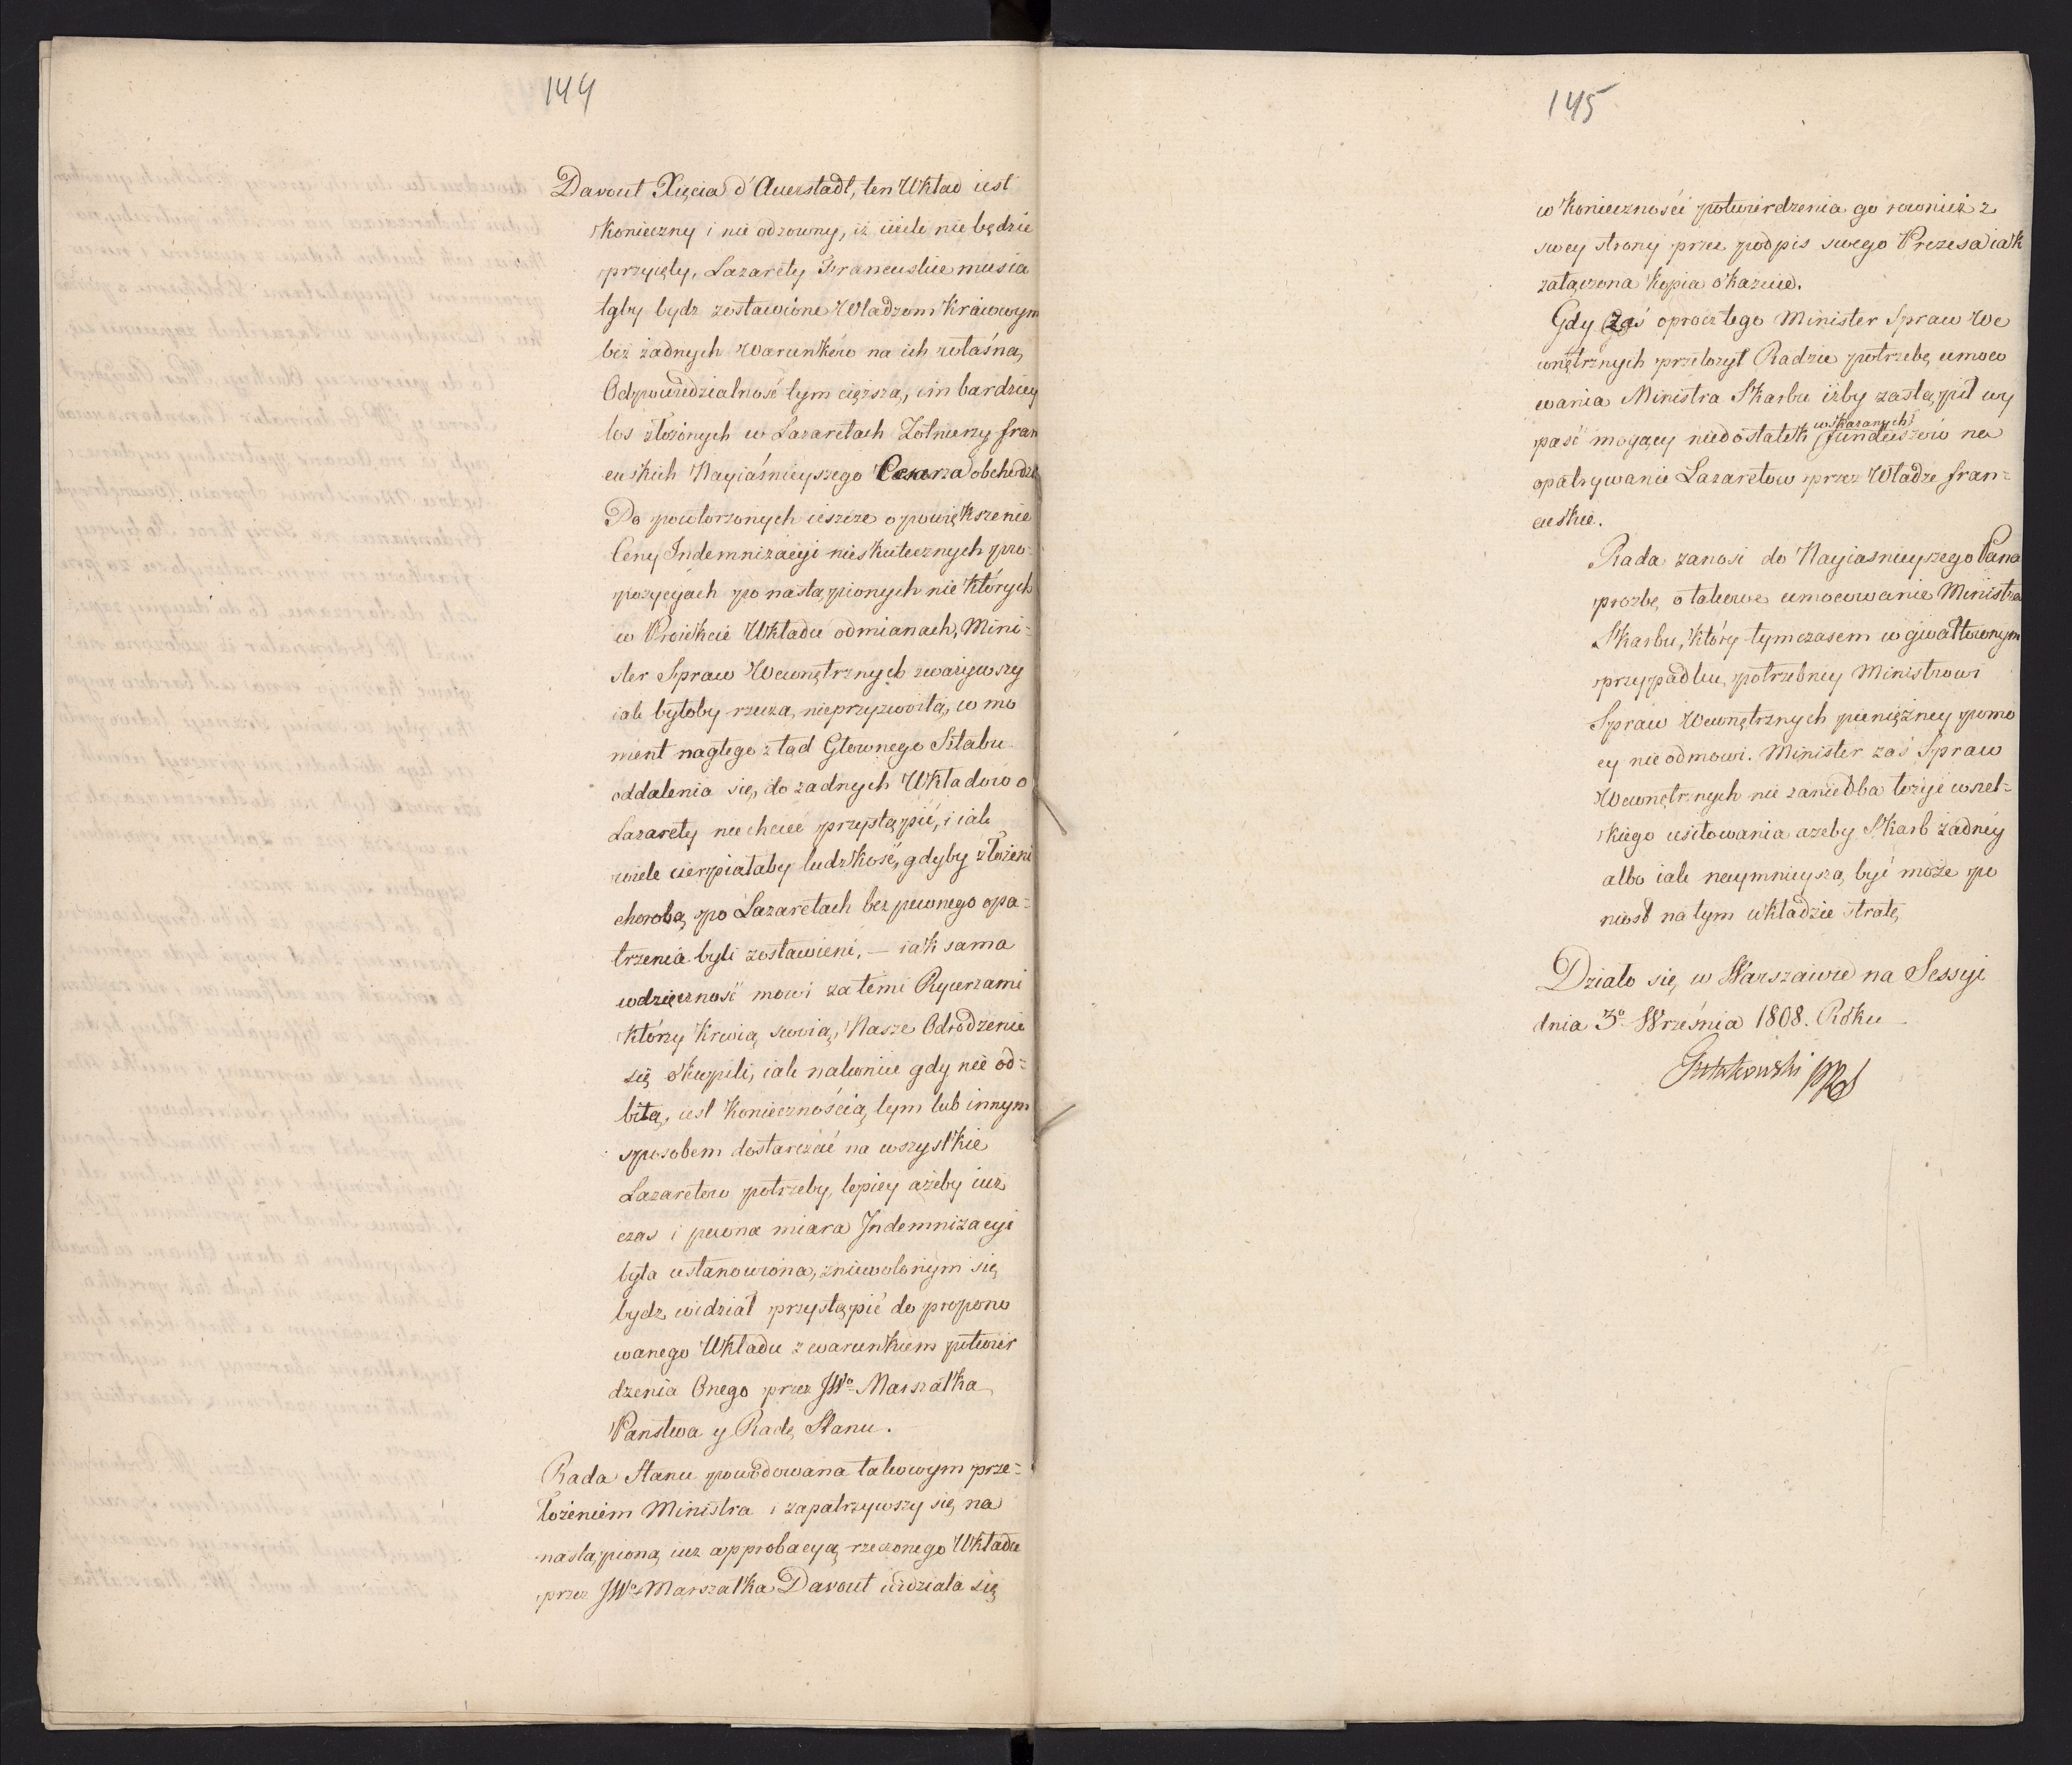 144
Davout Xięcia d'Auerstadt, ten Układ iest
konieczny i nie odzowny, iż ieżeli nie będzie
przyięty, Lazarety Francuskie musia
łyby bydz zostawione Władzom Kraiowym
bez żadnych Warunków na ich własną
Odpowiedzialność tym cięższą, im bardziey
los złożonych w Lazaretach Żołnierzy fran
cuskich Nayiaśnieyszego Cesarza obchodzi
Po powtorzonych ieszcze o powiększenie
Ceny Indemnizacyi nieskutecznych pro-
pozycyach po nastąpionych nie których
w Proiekcie Układu odmianach, Mini-
ster Spraw Wewnętrznych zważywszy
iak byłoby rzeczą nieprzyzwoitą, w mo
ment nagłego ztąd Głownego Sztabu
oddalenia się, do żadnych Układow o
Lazarety nie chcieć przystąpić, i iak
wiele cierpiałaby ludzkość, gdyby złożeni
chorobą po Lazaretach bez pewnego opa-
trzenia byli zostawieni, — iak sama
wdzięczność mowi za temi Rycerzami
którzy krwią swoią, Nasze Odrodzenie
się okupili, iak nakoniec gdy nie od-
bitą, iest koniecznością, tym lub innym
sposobem dostarczać na wszystkie
Lazaretow potrzeby, lepiey ażeby iuż
czas i pewna miara Indemnizacyi
była ustanowiona, zniewolonym się
bydz widział przystąpić do propono
wanego Układu z warunkiem potwier
dzenia Onego przez JWo Marszałka
Panstwa y Radę Stanu.
Rada Stanu powodowana takowym prze-
łożeniem Ministra i zapatrzywszy się na
nastąpioną iuż approbacyą rzeczonego Układu
przez JWo Marszałka Davout widziała się
145
w konieczności potwierdzenia go rownież z
swey strony przez podpis swego Prezesa iak
załączona kopia okazuie.
Gdy zaś oprocz tego Minister Spraw We
wnętrznych przełożył Radzie potrzebę umoco
wania Ministra Skarbu iżby zastąpił wy
wskazanych
paść mogący niedostatek funduszow na
opatrywanie Lazaretow przez Władze fran-
cuskie.
Rada zanosi do Nayiasnieyszego Pana
prozbę o takowe umocowanie Ministra
Skarbu, który tymczasem w gwałtownym
przypadku potrzebney Ministrowi
Spraw Wewnętrznych pieniężney pomo
cy nie odmowi. Minister zaś Spraw
Wewnętrznych nie zaniedba łożyć wszel-
kiego usiłowania ażeby Skarb żadney
albo iak naymnieyszą być może po
niosł na tym układzie stratę
Działo się w Warszawie na Sessyi
dnia 3o Września 1808. Roku